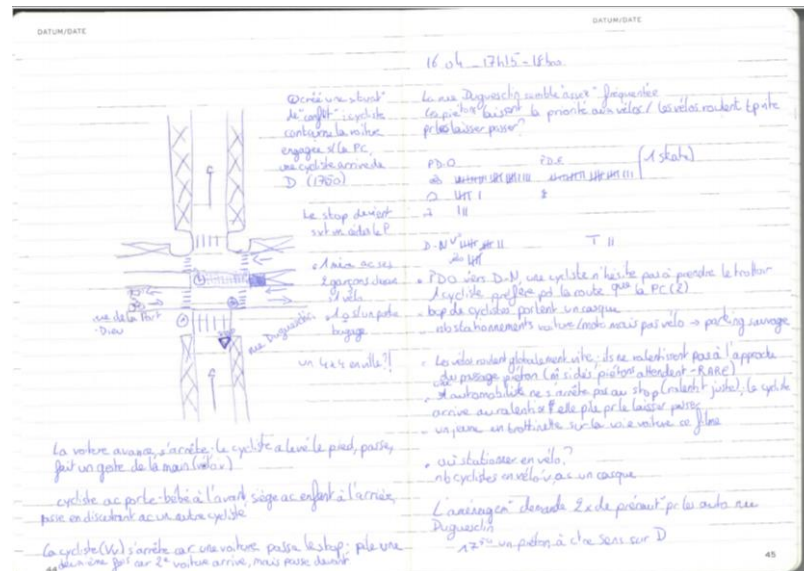 DATUM/DATE
créé une situat°
de "conflit": cycliste
contourne la voiture
engagée s/ la PC,
une cycliste arrive de
D (17h50)
Le stop devient
1 mère ac ses
2 garçons chacun
s/ vélo
1 s/ un porte
bagage
rue de la Part
-Dieu
rue Duguesclin
un 4x4 en ville?!
La voiture avance, s'arrête: le cycliste a levé le pied, passe,
fait un geste de la main (relax)
cycliste ac porte-bébé à l'avant, siège ac enfant à l'arrière,
passe en discutant ac un autre cycliste
La cycliste (VV) s'arrête car une voiture passe le stop; pile une
deuxième fois car 2e voiture arrive, mais passe devant
44
DATUM/DATE
16.04 _ 17h15 - 18h00
La rue Duguesclin semble "assez" fréquentée
Les piétons laissent la priorité aux vélos / les vélos roulent tp vite
pr les laisser passer?
PD.O PD.E (1 skate)
D.N T II
PDO vers D-N, une cycliste n'hésite pas à prendre le trottoir
1 cycliste préfère la route que la PC (2)
bcp de cyclistes portent un casque
nb stationnements voiture/moto mais pas vélo → parking sauvage
Les vélos roulent globalement vite; ils ne ralentiront pas à l'approche
du passage piéton (m si des piétons attendent - RARE)
automobiliste ne s'arrête pas au stop (ralentit juste), le cycliste
arrive au ralenti elle pile pr le laisser passer
un jeune en trottinette sur la voie voiture se filme
où stationner en vélo?
nb cyclistes en vélo'v as un casque
L'aménagemt demande 2x de précaut° pr les auto rue
Duguesclin
un piéton à c/re sens sur D
45